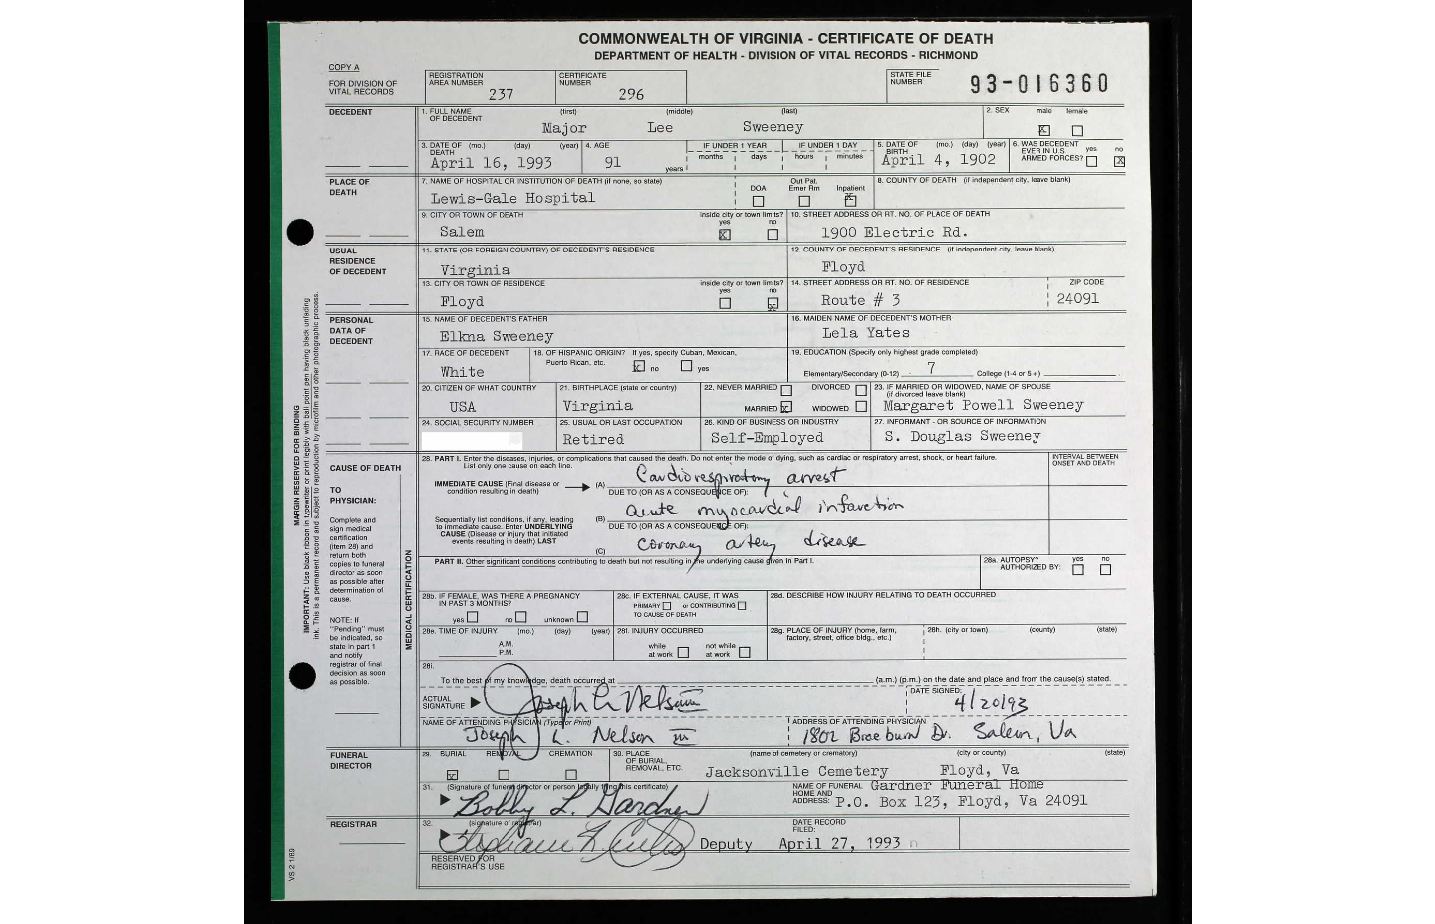 COMMONWEALTH OF VIRGINIA - CERTIFICATE OF DEATH
DEPARTMENT OF HEALTH - DIVISION OF VITAL RECORDS - RICHMOND
COPY A
FOR DIVISION OF VITAL RECORDS
REGISTRATION AREA NUMBER 237
CERTIFICATE NUMBER 296
STATE FILE NUMBER 93-016360
DECEDENT
1. FULL NAME OF DECEDENT (first) (middle) (last)
Major Lee Sweeney
2. SEX male female
X
3. DATE OF DEATH (mo.) (day) (year)
April 16, 1993
4. AGE
91 years
IF UNDER 1 YEAR months days
IF UNDER 1 DAY hours minutes
5. DATE OF BIRTH (mo.) (day) (year)
April 4, 1902
6. WAS DECEDENT EVER IN U.S. ARMED FORCES? yes no
X
PLACE OF DEATH
7. NAME OF HOSPITAL OR INSTITUTION OF DEATH (if none, so state)
Lewis-Gale Hospital
DOA Out Pat. Emer Rm Inpatient
X
8. COUNTY OF DEATH (if independent city, leave blank)
9. CITY OR TOWN OF DEATH
Salem
inside city or town limits? yes no
X
10. STREET ADDRESS OR RT. NO. OF PLACE OF DEATH
1900 Electric Rd.
USUAL RESIDENCE OF DECEDENT
11. STATE (OR FOREIGN COUNTRY) OF DECEDENT'S RESIDENCE
Virginia
12. COUNTY OF DECEDENT'S RESIDENCE (if independent city, leave blank)
Floyd
13. CITY OR TOWN OF RESIDENCE
Floyd
inside city or town limits? yes no
X
14. STREET ADDRESS OR RT. NO. OF RESIDENCE
Route # 3
ZIP CODE
24091
PERSONAL DATA OF DECEDENT
15. NAME OF DECEDENT'S FATHER
Elkna Sweeney
16. MAIDEN NAME OF DECEDENT'S MOTHER
Lela Yates
17. RACE OF DECEDENT
White
18. OF HISPANIC ORIGIN? If yes, specify Cuban, Mexican, Puerto Rican, etc.
X no yes
19. EDUCATION (Specify only highest grade completed)
Elementary/Secondary (0-12) 7 College (1-4 or 5+)
20. CITIZEN OF WHAT COUNTRY
USA
21. BIRTHPLACE (state or country)
Virginia
22. NEVER MARRIED DIVORCED
MARRIED X WIDOWED
23. IF MARRIED OR WIDOWED, NAME OF SPOUSE (if divorced leave blank)
Margaret Powell Sweeney
24. SOCIAL SECURITY NUMBER
25. USUAL OR LAST OCCUPATION
Retired
26. KIND OF BUSINESS OR INDUSTRY
Self-Employed
27. INFORMANT - OR SOURCE OF INFORMATION
S. Douglas Sweeney
CAUSE OF DEATH
TO PHYSICIAN:
Complete and sign medical certification (item 28) and return both copies to funeral director as soon as possible after determination of cause.
NOTE: If "Pending" must be indicated, so state in part 1 and notify registrar of final decision as soon as possible.
MEDICAL CERTIFICATION
28. PART I. Enter the diseases, injuries, or complications that caused the death. Do not enter the mode of dying, such as cardiac or respiratory arrest, shock, or heart failure.
List only one cause on each line.
INTERVAL BETWEEN ONSET AND DEATH
IMMEDIATE CAUSE (Final disease or condition resulting in death)
(A) Cardiorespiratory arrest
DUE TO (OR AS A CONSEQUENCE OF):
Sequentially list conditions, if any, leading to immediate cause. Enter UNDERLYING CAUSE (Disease or injury that initiated events resulting in death) LAST
(B) acute myocardial infarction
DUE TO (OR AS A CONSEQUENCE OF):
(C) Coronary artery disease
PART II. Other significant conditions contributing to death but not resulting in the underlying cause given in Part I.
28a. AUTOPSY? AUTHORIZED BY: yes no
28b. IF FEMALE, WAS THERE A PREGNANCY IN PAST 3 MONTHS?
yes no unknown
28c. IF EXTERNAL CAUSE, IT WAS
PRIMARY or CONTRIBUTING
TO CAUSE OF DEATH
28d. DESCRIBE HOW INJURY RELATING TO DEATH OCCURRED
28e. TIME OF INJURY (mo.) (day) (year)
A.M.
P.M.
28f. INJURY OCCURRED
while at work not while at work
28g. PLACE OF INJURY (home, farm, factory, street, office bldg., etc.)
28h. (city or town) (county) (state)
28i.
To the best of my knowledge, death occurred at (a.m.) (p.m.) on the date and place and from the cause(s) stated.
ACTUAL SIGNATURE
Joseph L. Nelson III
DATE SIGNED:
4/20/93
NAME OF ATTENDING PHYSICIAN (Type or Print)
Joseph L. Nelson III
ADDRESS OF ATTENDING PHYSICIAN
1802 Braeburn Dr. Salem, Va
FUNERAL DIRECTOR
29. BURIAL REMOVAL CREMATION
X
30. PLACE OF BURIAL, REMOVAL, ETC. (name of cemetery or crematory) (city or county) (state)
Jacksonville Cemetery Floyd, Va
31. (Signature of funeral director or person legally filing this certificate)
Bobby L. Gardner
NAME OF FUNERAL HOME AND ADDRESS:
Gardner Funeral Home
P.O. Box 123, Floyd, Va 24091
REGISTRAR
32. (signature of registrar)
Deputy
DATE RECORD FILED:
April 27, 1993
RESERVED FOR REGISTRAR'S USE
MARGIN RESERVED FOR BINDING
IMPORTANT: Use black ribbon in typewriter or print legibly with ball point pen having black unfading ink. This is a permanent record and subject to reproduction by microfilm and other photographic process.
VS 2 1/89